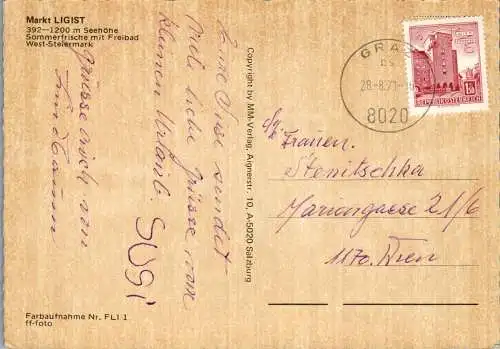 Markt LIGIST
392—1200 m Seehöhe
Sommerfrische mit Freibad
West-Steiermark
Eure Susi sendet
viele liebe Grüsse vom
kleinen Urlaub.
SUSI
Grüsse auch von
Copyright by MM-Verlag, Aignerstr. 10, A-5020 Salzburg
GRAZ
28.-8.71-
8020
REPUBLIK ÖSTERREICH
1.50
Frauen.
Stenitschka
Mariengasse 21/6
1170. Wien
Farbaufnahme Nr. FLI 1
ff-foto